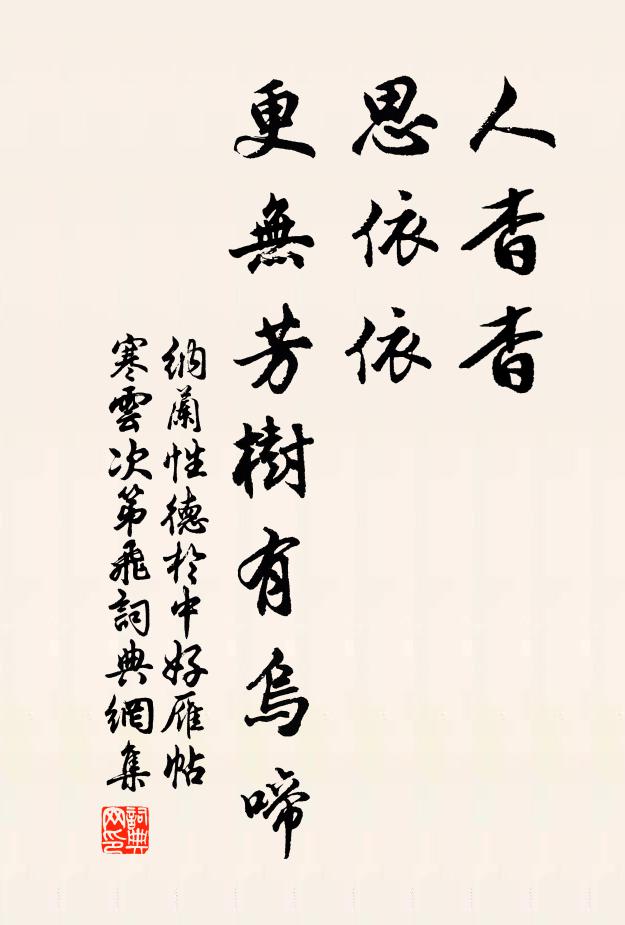 人杳杳
思依依
更無芳樹有烏啼
納蘭性德於中好雁帖
寒雲次第飛詞典網集
詞典
网印